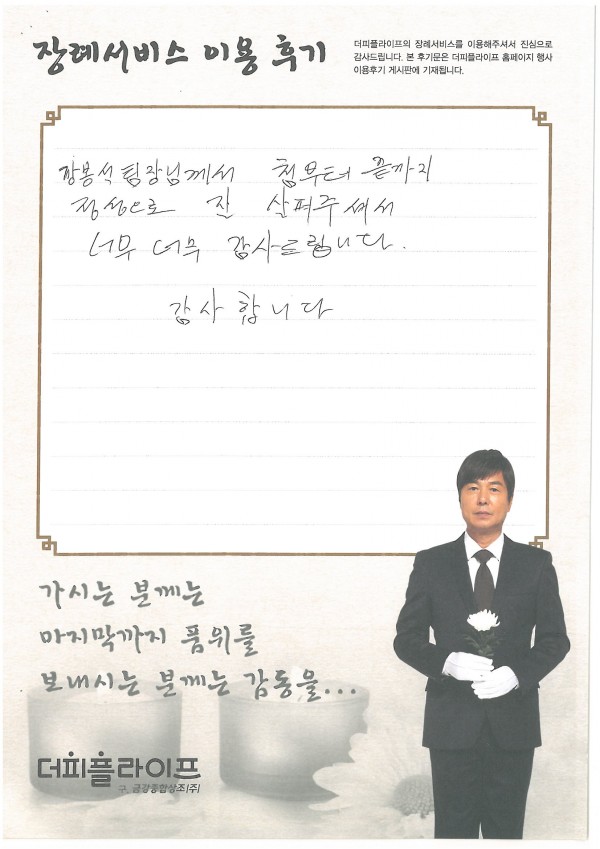 장례서비스 이용 후기
더피플라이프의 장례서비스를 이용해주셔서 진심으로
감사드립니다. 본 후기문은 더피플라이프 홈페이지 행사
이용후기 게시판에 기재됩니다.
장봉석팀장님께서 첨부터 끝까지
정성으로 잔 살펴주셔서
너무 너무 감사드립니다.
감사합니다
가시는 분께는
마지막까지 품위를
보내시는 분께는 감동을...
더피플라이프
구. 금강종합상조(주)